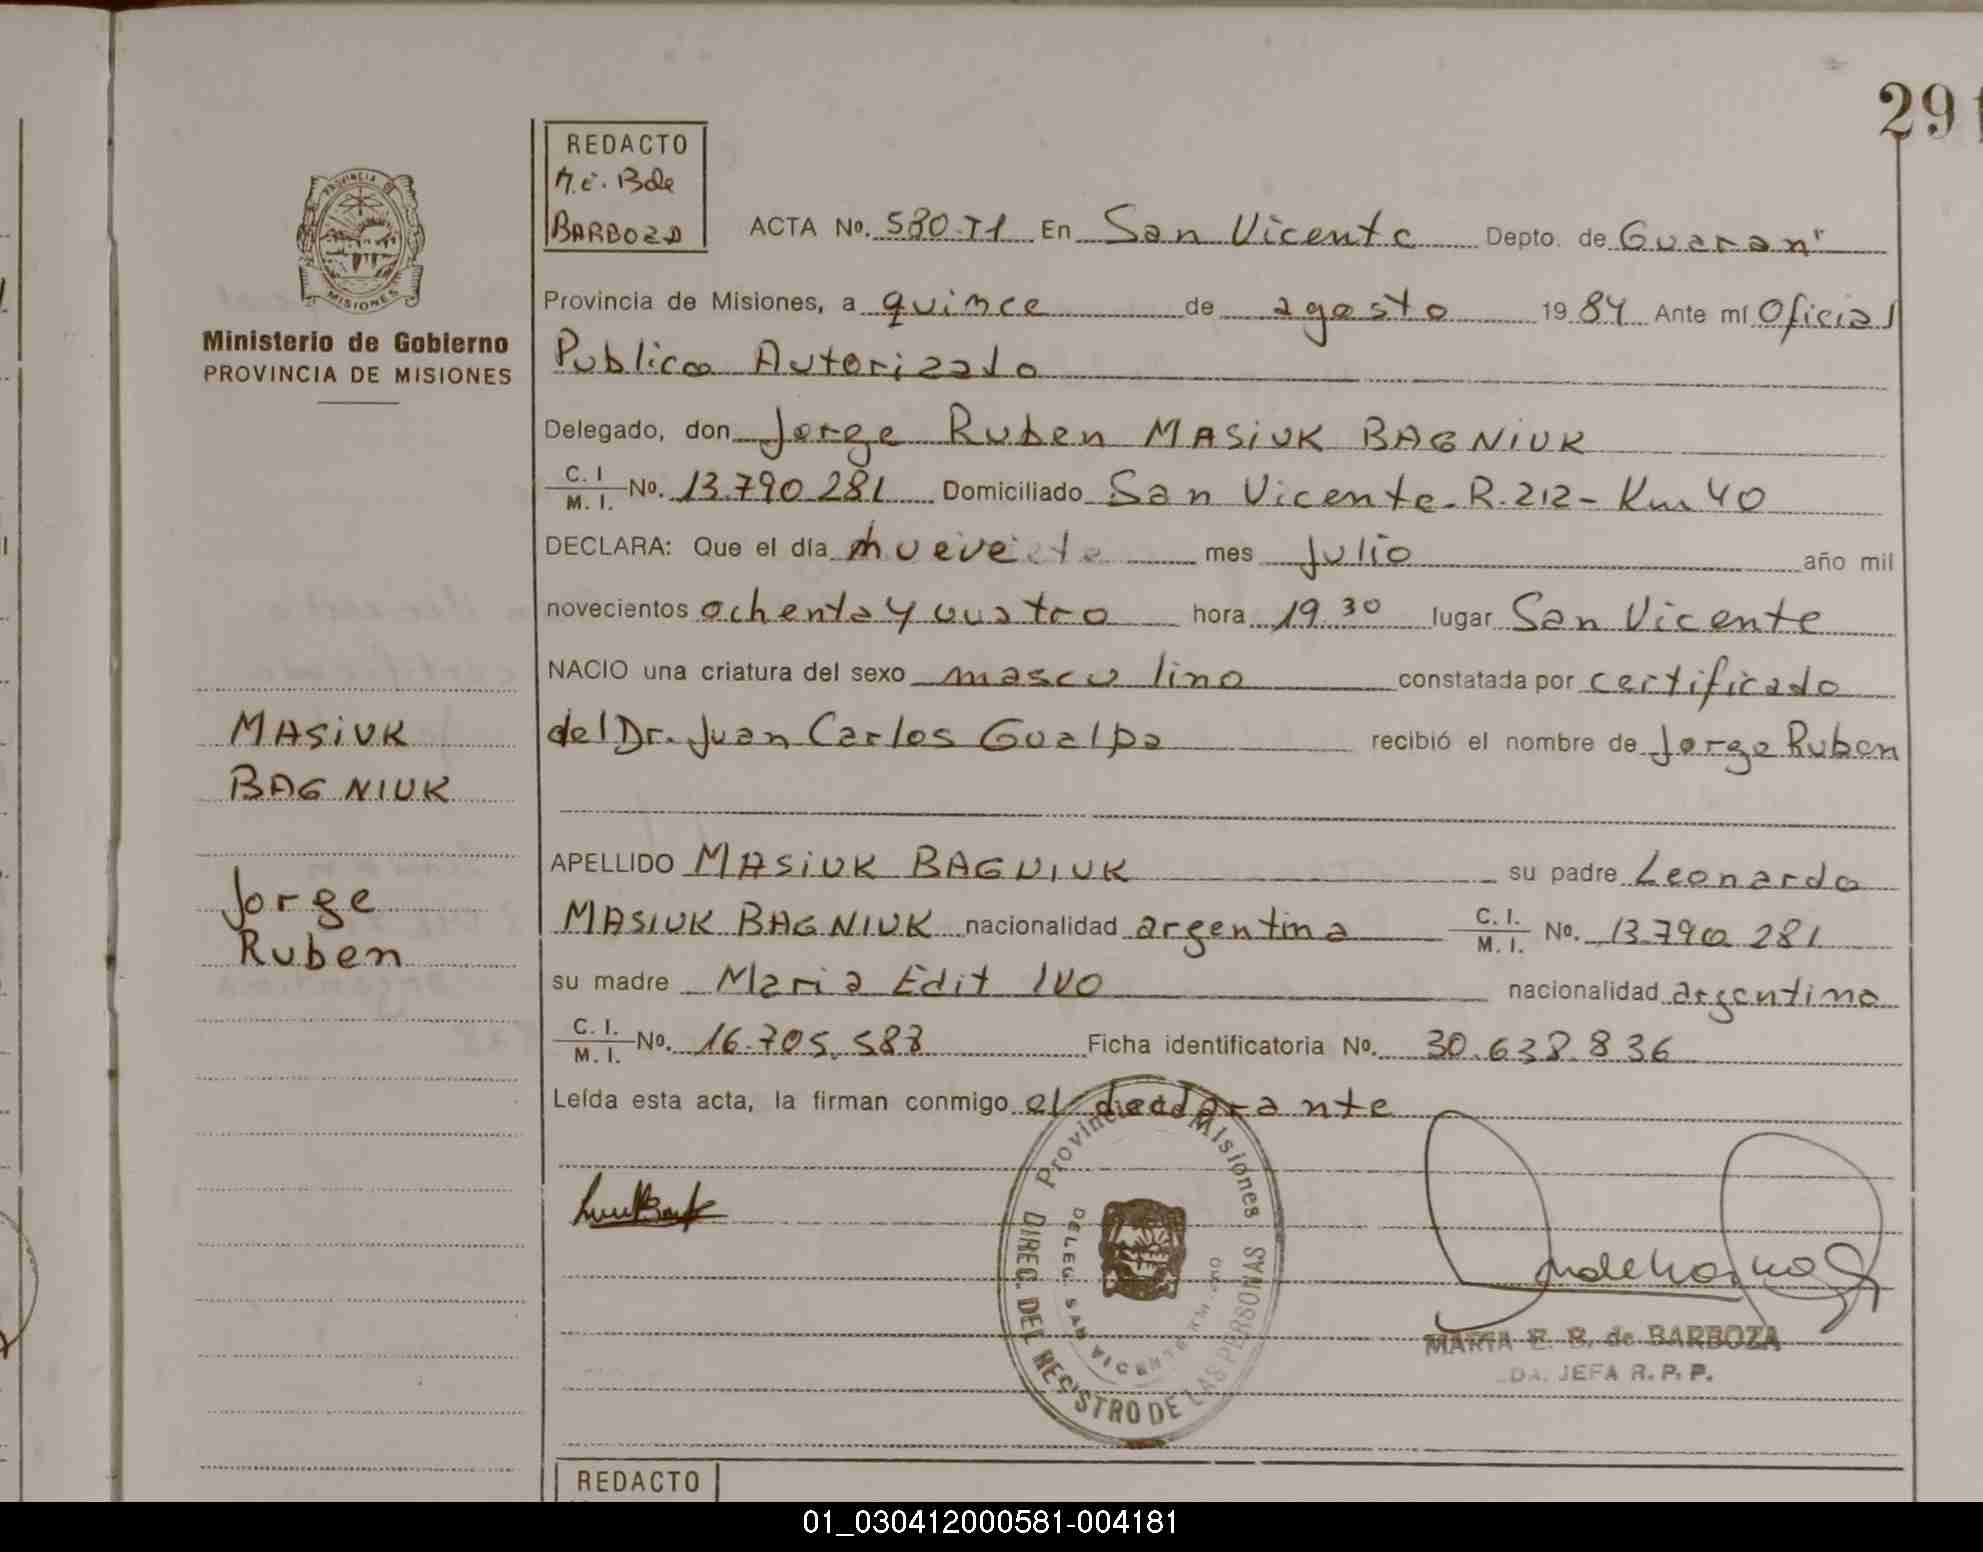 291
REDACTO
M.E. B de
BARBOZA
PROVINCIA DE
MISIONES
Ministerio de Gobierno
PROVINCIA DE MISIONES
ACTA No. 580-T1 En San Vicente Depto. de Guaraní
Provincia de Misiones, a quince de agosto 1984 Ante mí Oficial
Publico Autorizado
Delegado, don Jorge Ruben MASIUK BAGNIUK
C. I. M. I. No. 13.790.281 Domiciliado San Vicente - R.212 - Km 40
DECLARA: Que el día nueve mes Julio año mil
novecientos ochenta y cuatro hora 19.30 lugar San Vicente
NACIO una criatura del sexo masculino constatada por certificado
del Dr. Juan Carlos Gualpa recibió el nombre de Jorge Ruben
APELLIDO MASIUK BAGNIUK su padre Leonardo
MASIUK BAGNIUK nacionalidad argentina C. I. M. I. No. 13.790.281
su madre Maria Edit IVO nacionalidad argentina
C. I. M. I. No. 16.705.583 Ficha identificatoria No. 30.638.836
Leída esta acta, la firman conmigo el declarante
MASIUK
BAGNIUK
Jorge
Ruben
Provincia de Misiones
DIREC. DEL REGISTRO DE LAS PERSONAS
DELEG. SAN VICENTE KM. 40
MARIA E. B. de BARBOZA
DA. JEFA R. P. P.
REDACTO
01_030412000581-004181